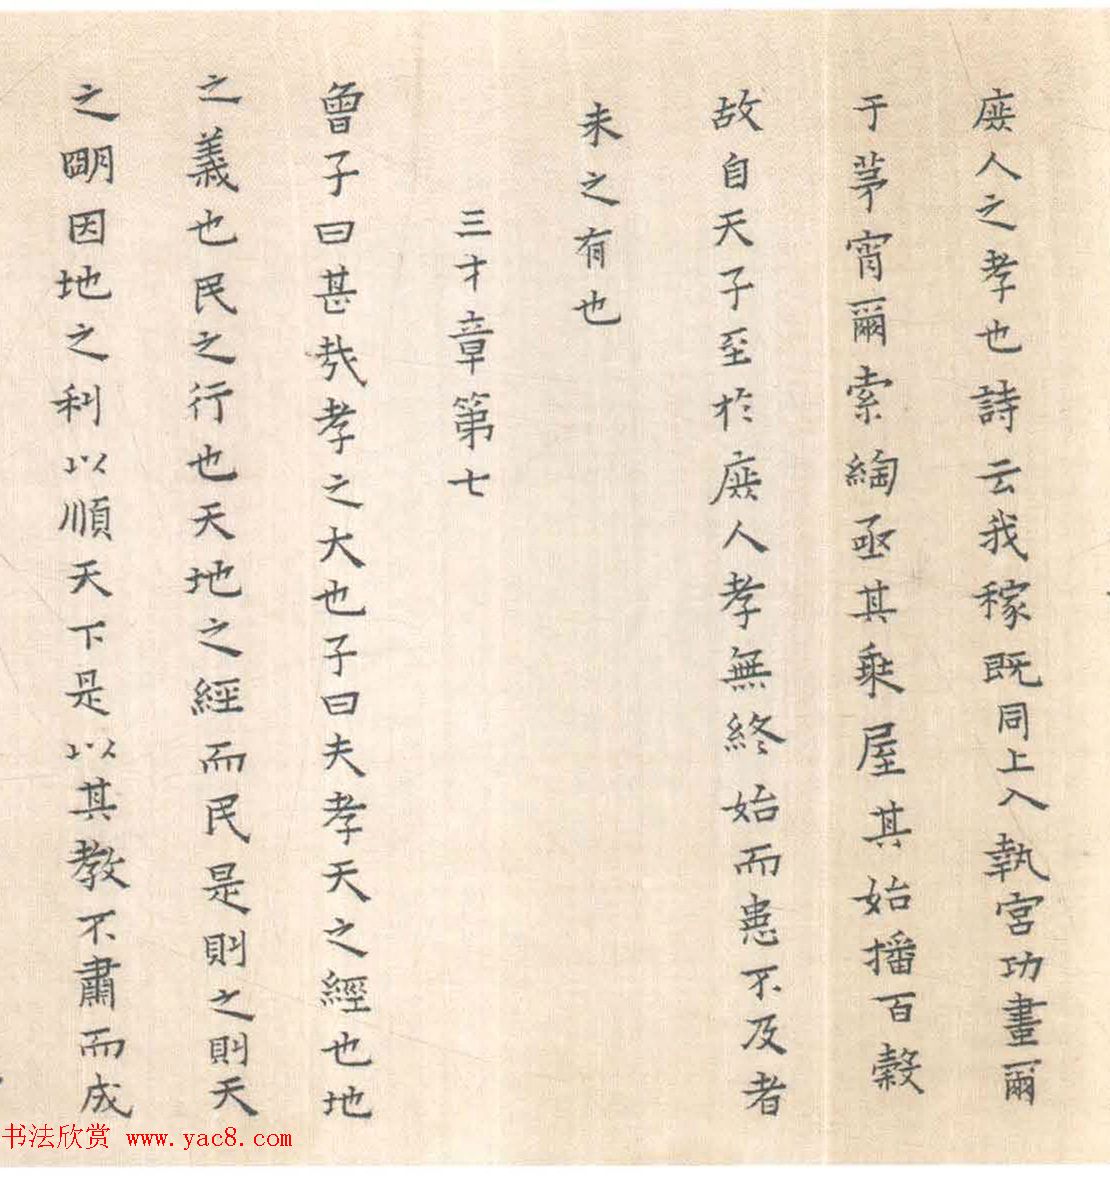 庻人之孝也詩云我稼既同上入執宮功晝爾
于茅宵爾索綯亟其乘屋其始播百榖
故自天子至於庻人孝無終始而患不及者
未之有也
三才章第七
曾子曰甚㢤孝之大也子曰夫孝天之經也地
之義也民之行也天地之經而民是則之則天
之明因地之利以順天下是以其教不肅而成
书法欣赏 www.yac8.com